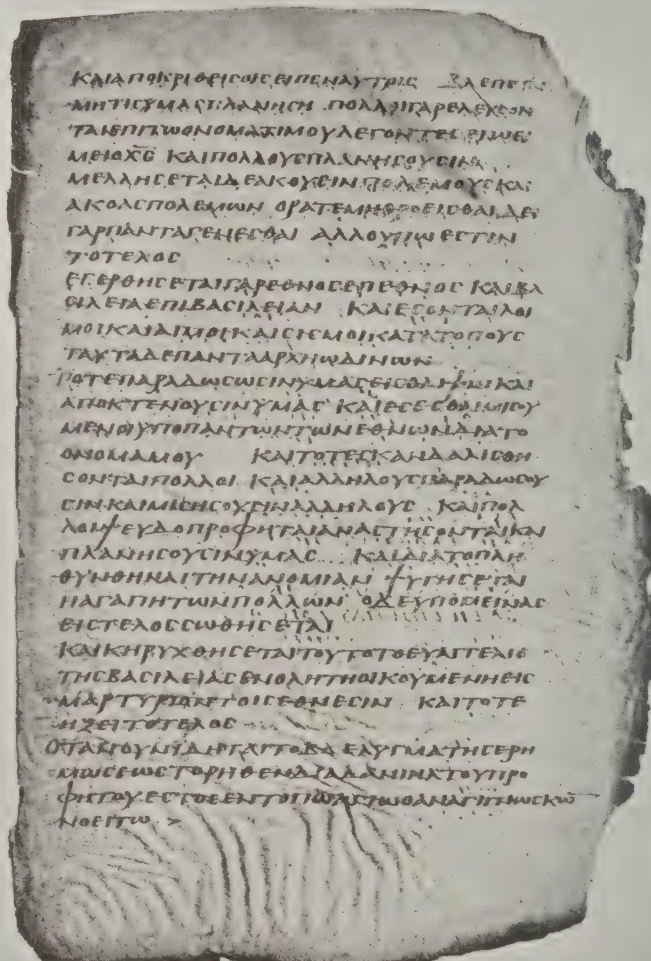 ΚΑΙΑΠΟΚΡΙΘΕΙCΟΙCΕΙΠΕΝΑΥΤΟΙC ΒΛΕΠΕΤΕ
ΜΗΤΙCΥΜΑCΠΛΑΝΗCΗ ΠΟΛΛΟΙΓΑΡΕΛΕΥCΟΝ
ΤΑΙΕΠΙΤΩΟΝΟΜΑΤΙΜΟΥΛΕΓΟΝΤΕCΕΓΩΕΙ
ΜΕΙΟΧ̅C̅ ΚΑΙΠΟΛΛΟΥCΠΛΑΝΗCΟΥCΙΝ
ΜΕΛΛΗCΕΤΑΙΔΕΑΚΟΥΕΙΝΠΟΛΕΜΟΥCΚΑΙ
ΑΚΟΑCΠΟΛΕΜΩΝ ΟΡΑΤΕΜΗΘΡΟΕΙCΘΑΙΔΕΙ
ΓΑΡΠΑΝΤΑΓΕΝΕCΘΑΙ ΑΛΛΟΥΠΩΕCΤΙΝ
ΤΟΤΕΛΟC
ΕΓΕΡΘΗCΕΤΑΙΓΑΡΕΘΝΟCΕΠΕΘΝΟC ΚΑΙΒΑ
CΙΛΕΙΑΕΠΙΒΑCΙΛΕΙΑΝ ΚΑΙΕCΟΝΤΑΙΛΟΙ
ΜΟΙΚΑΙΛΙΜΟΙΚΑΙCΙCΜΟΙΚΑΤΑΤΟΠΟΥC
ΤΑΥΤΑΔΕΠΑΝΤΑΑΡΧΗΩΔΙΝΩΝ
ΤΟΤΕΠΑΡΑΔΩCΩCΙΝΥΜΑCΕΙCΘΛΗΨΙΝΚΑΙ
ΑΠΟΚΤΕΝΟΥCΙΝΥΜΑC ΚΑΙΕCΕCΘΑΙΜΙCΟΥ
ΜΕΝΟΙΥΠΟΠΑΝΤΩΝΤΩΝΕΘΝΩΝΔΙΑΤΟ
ΟΝΟΜΑΜΟΥ ΚΑΙΤΟΤΕCΚΑΝΔΑΛΙCΘΗ
CΟΝΤΑΙΠΟΛΛΟΙ ΚΑΙΑΛΛΗΛΟΥCΠΑΡΑΔΩCΟΥ
CΙΝΚΑΙΜΙCΗCΟΥCΙΝΑΛΛΗΛΟΥC ΚΑΙΠΟΛ
ΛΟΙΨΕΥΔΟΠΡΟΦΗΤΑΙΑΝΑCΤΗCΟΝΤΑΙΚΑΙ
ΠΛΑΝΗCΟΥCΙΝΥΜΑC ΚΑΙΔΙΑΤΟΠΛΗ
ΘΥΝΘΗΝΑΙΤΗΝΑΝΟΜΙΑΝ ΨΥΓΗCΕΤΑΙ
ΗΑΓΑΠΗΤΩΝΠΟΛΛΩΝ ΟΔΕΥΠΟΜΕΙΝΑC
ΕΙCΤΕΛΟCCΩΘΗCΕΤΑΙ
ΚΑΙΚΗΡΥΧΘΗCΕΤΑΙΤΟΥΤΟΤΟΕΥΑΓΓΕΛΙΟ
ΤΗCΒΑCΙΛΕΙΑCΕΝΟΛΗΤΗΟΙΚΟΥΜΕΝΗΕΙC
ΜΑΡΤΥΡΙΟΝΤΟΙCΕΘΝΕCΙΝ ΚΑΙΤΟΤΕ
ΗΞΕΙΤΟΤΕΛΟC
ΟΤΑΝΟΥΝΙΔΗΤΑΙΤΟΒΔΕΛΥΓΜΑΤΗCΕΡΗ
ΜΩCΕΩCΤΟΡΗΘΕΝΔΙΑΔΑΝΙΗΛΤΟΥΠΡΟ
ΦΗΤΟΥΕCΤΟCΕΝΤΟΠΩΑΓΙΩΟΑΝΑΓΙΝΩCΚΩ̅
ΝΟΕΙΤΩ >